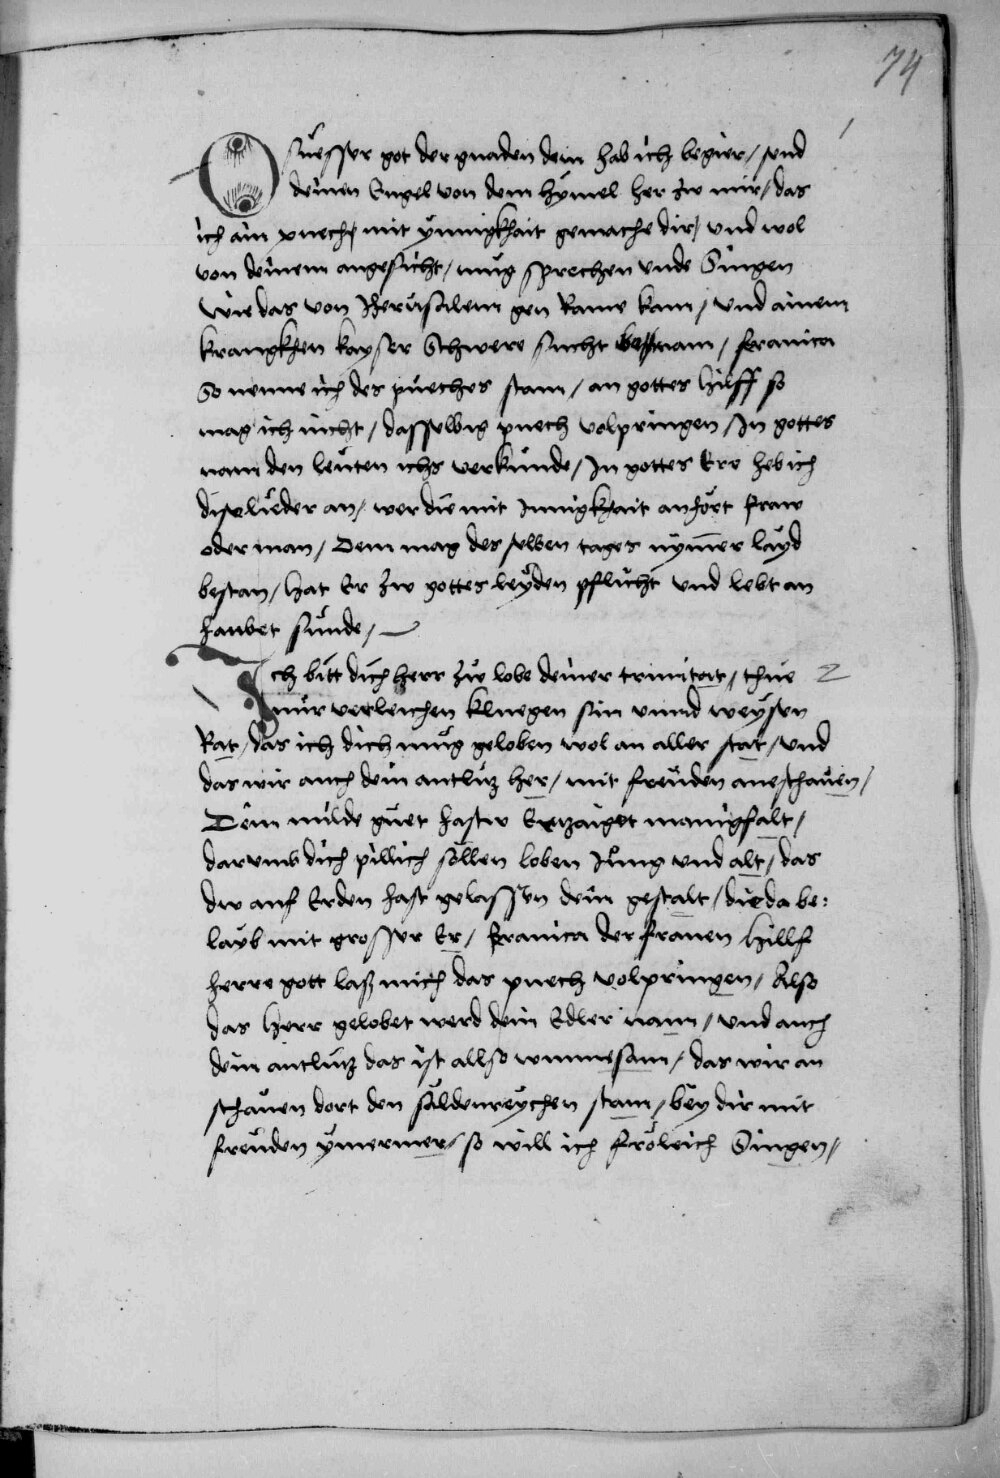 74
O süesser got der gnaden dein hab ich begier / send
deinen Engel von dem hÿmel her zw mir / das
ich ain puech mit ÿnnigkhait gemache dir / und wol
von deinem angesicht / mug sprechen unde Singen
wie das von Jherusalem gen Rame kam / und ainem
krangkhen kayser Schwere sucht benam / feranica
So nenne ich des püeches stam / an gottes hilff so
mag ich nicht / dasselbig puech volpringen / In gottes
nam den leuten ichs verkunde / In gottes Ere heb ich
dise lieder an / wer die mit Innigkhait anhört fraw
oder man / Dem mag des selben tages nÿmer layd
bestan / hat Er zw gottes leÿden pflicht und lebt an
haubet sünde /
Ich bitt dich herr zw lobe deiner trinitat / thue 2
mir verleichen kluegen sin unnd weÿsen
Rat / das ich dich mug geloben wol an aller stat / und
das wir auch dein antlutz her / mit freuden aneschauen /
Dein milde guet hastu Ertzaiget manigfalt /
darumb dich pillich sollen loben Jung und alt / das
du auf Erden hast gelassen dein gestalt / die da be:
layb mit grosser Er / feranica der frauen hillf
herre gott lass mich das puech volpringen / Also
das herr gelobet werd dein Edler nam / und auch
dein antlutz das ist allso wunnesam / das wir an
schauen dort den säldenreÿchen stam / beÿ dir mit
freuden ÿmermer / so will ich fröleich Singen /